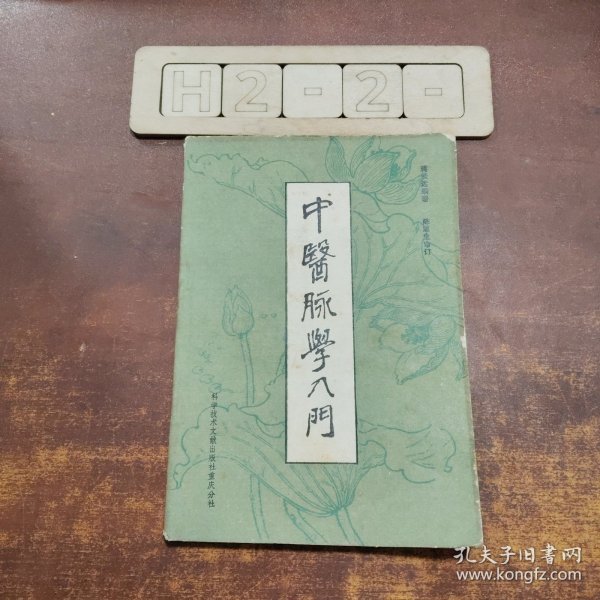 H2-2-
中醫脉學入門
科学技术文献出版社重庆分社
孔夫子旧书网
www.kongfz.com